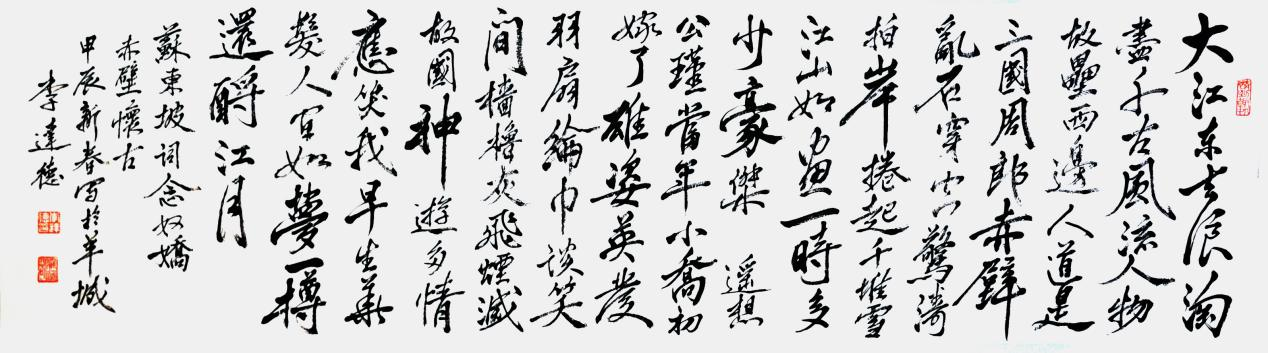 大江东去浪淘
盡千古風流人物
故壘西邊人道是
三國周郎赤壁
亂石穿空驚濤
拍岸捲起千堆雪
江山如畫一時多
少豪傑 遥想
公瑾當年小喬初
嫁了雄姿英發
羽扇綸巾談笑
间檣櫓灰飛煙滅
故國神遊多情
應笑我早生華
髮人间如夢一樽
還酹江月
蘇東坡詞念奴嬌
赤壁懷古
甲辰新春写於羊城
李達德